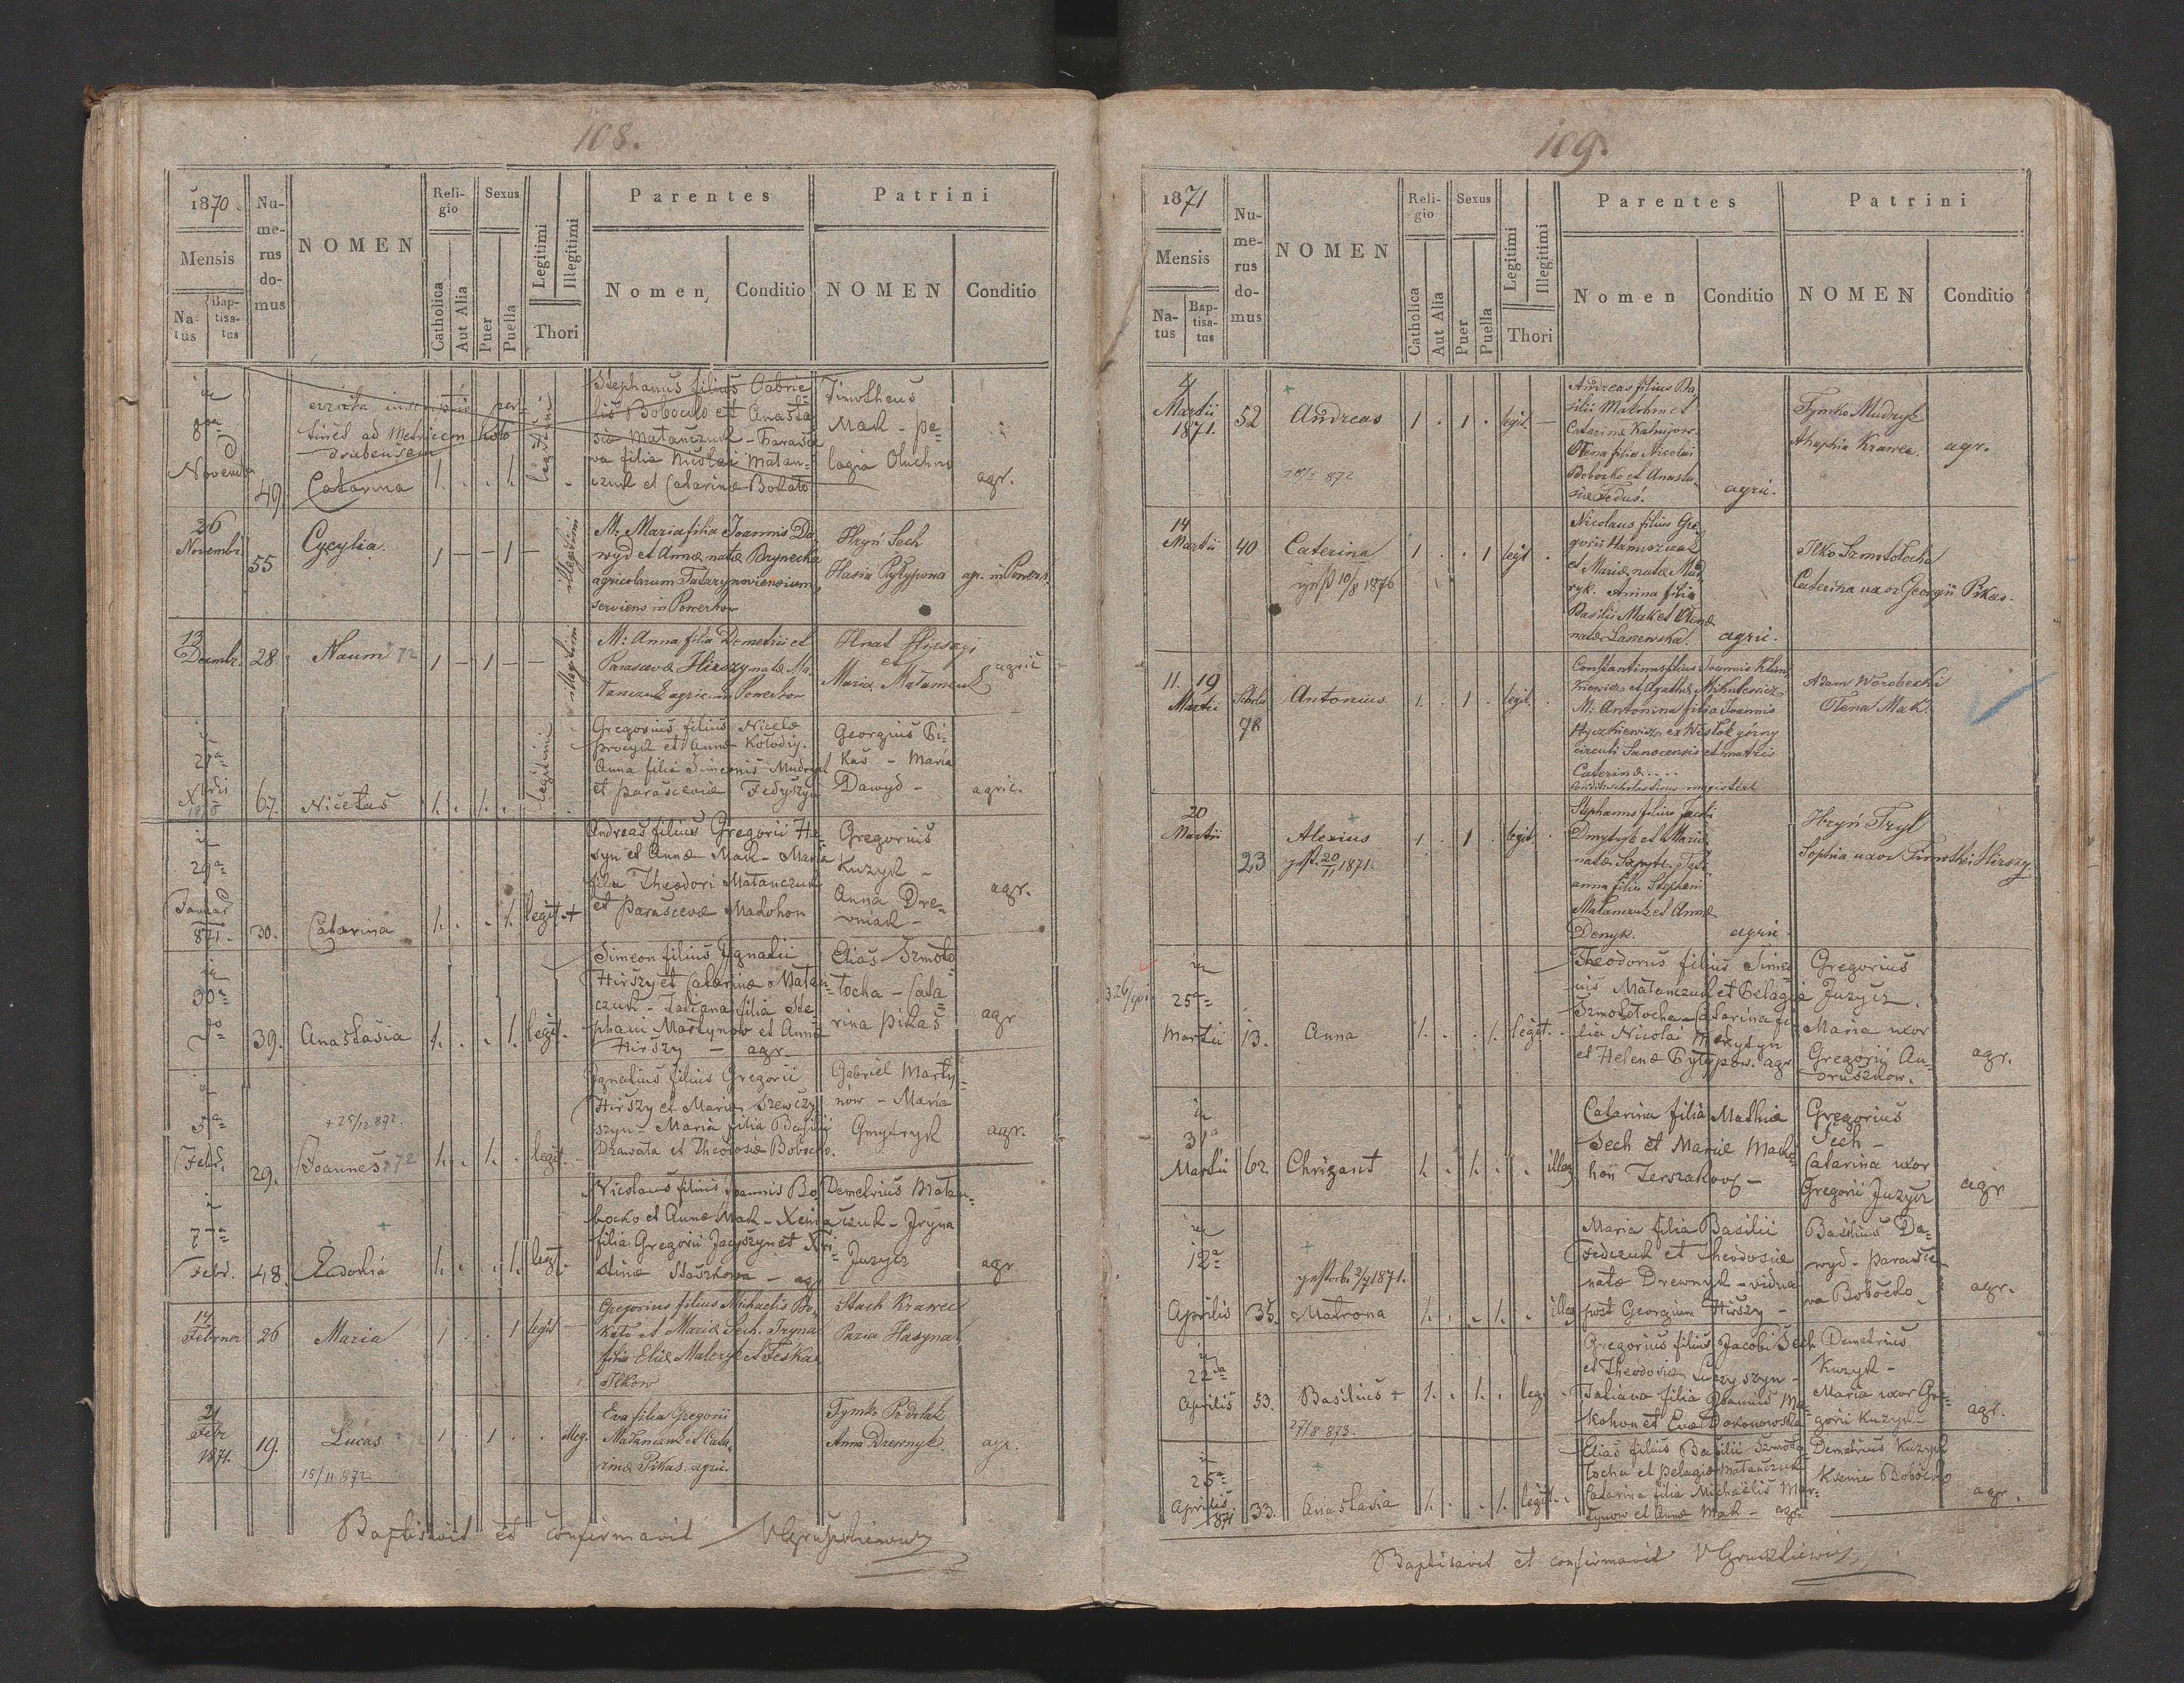 108.
1870.
Numerus domus
NOMEN
Religio
Sexus
Legitimi
Illegitimi
Parentes
Patrini
Mensis
Natus
Baptisatus
Catholica
Aut Alia
Puer
Puella
Thori
Nomen
Conditio
NOMEN
Conditio
in 8va
Novemb
49.
Catarina
1. . . 1.
legitimi
Stephanus filius Gabrie-
lis Bobocko et Anasta-
siæ Matanczuk - Parasce
va filia Nicolai Matan-
czuk et Catarinæ Bokato
Timotheus
Mak - Pe-
lagia Oluchno
agr.
26
Novembr.
55
Cycylia.
1 — — 1 —
illegitimi
M: Maria filia Joannis Da-
wyd et Annæ natæ Brynecka
agricolarum Tatarynoviensium,
serviens in Powerhow
Hryń Sech
Hasia Pyłypowa
agr. in Powerh.
13
Decembr.
28.
Naum 72
1 — 1 — —
illegitim
M: Anna filia Demetrii et
Parascevæ Hirszy natæ Ma-
tanczuk agric. in Powerhow
Hnat Hirszy
et
Maria Matanczuk
agric
in
27a
Xbri
67.
Nicetas
1. . 1. .
legitimi
Gregorius filius Nicetæ
Procyk et Annæ Kołodiy.
Anna filia Simeonis Mudryk
et Parasceviæ Fedyszyn
Georgius Pi-
kas - Maria
Dawyd -
agric.
in
29a
Januar
871.
30.
Catarina
1. . . 1. legit. +
Andreas filius Gregorii Ha-
syn et Annæ Mak - Maria
filia Theodori Matanczuk
et Parascevæ Makohon
Gregorius
Kuzyk -
Anna Dre-
wniak -
agr.
in
30a
39.
Anastasia
1. . . 1. legit.
Simeon filius Ignatii
Hirszy et Catarinæ Matan-
czuk - Tatiana filia Ste-
phani Martynow et Annæ
Hirszy — agr.
Elias Szmoto
tocha - Cata
rina Pikas
agr
in
5a
Febr.
29.
+ 25/12 872.
Joannes 72
1. . 1. . legit. -
Ignatius filius Gregorii
Hirszy et Mariæ Szewczy
szyn - Maria filia Basilii
Drawata et Theodosiæ Bobocko.
Gabriel Marty-
nów - Maria
Gmytryk
agr.
in
7a
Febr.
48.
Eudokia
1. . . 1. legit.
Nicolaus filius Joannis Bo-
bocko et Annæ Mak - Xenia
filia Gregorii Jacyszyn et Xri-
stinæ Staszkowa - agr
Demetrius Matan-
czuk - Iryna
Juzycz
agr
14
Februar
26
Maria
1 . . 1 legit
Gregorius filius Michaelis Bo-
kato et Mariæ Sech. Iryna
filia Eliæ Maleryk et Feśka
Ilkow
Stach Krawec
Pazia Hasyna
21
Febr
1871.
19.
Lucas
15/11 872
1 . 1 . . illeg.
Eva filia Gregorii
Matanczuk et Cata-
rinæ Pikas agric.
Tymko Podolak
Anna Drewnyk.
agr.
Baptisavit et confirmavit VGruszkiewicz
109.
1871
Numerus domus
NOMEN
Religio
Sexus
Legitimi
Illegitimi
Parentes
Patrini
Mensis
Natus
Baptisatus
Catholica
Aut Alia
Puer
Puella
Thori
Nomen
Conditio
NOMEN
Conditio
4
Martii
1871.
52
Andreas
1 . 1 . legit —
Andreas filius Ba-
silii Makohon et
Catarinæ Kalnijow.
Olena filia Nicolai
Bobocko et Anasta-
siæ Feduś.
agric.
Tymko Mudryk
Ahaphia Krawec.
agr.
14
Martii
40
Caterina
10/8 1876
1 . . 1 legit .
Nicolaus filius Gre-
gorii Hanuszczak
et Mariæ natæ Mud-
ryk. Anna filia
Basilii Mak et
natæ Laszewska.
agric.
Ilko Szmotołocha
Caterina uxor Georgii Pikas.
11. 19
Martii
78
Antonius
1. . 1 . legit.
Constantinus filius Joannis Klim-
kiewicz et Agathæ Mikulewicz
M: Antonina filia Joannis
Hyczkiewicz ex Wisłok górny
circuli Sanocensis et matris
Caterinæ....
Adam Worobecki
Olena Mak.
20
Martii
23
Alexius
20/11 1871.
1 . 1 legit.
Stephanus filius Jacobi
Dmytryk et Mariæ
natæ Szpyt.
anna filia Stephani
Matanczuk et Annæ
Denyk.
agric
Hryń Fryl
Sophia uxor Timothei Hirszy
in
25a
Martii
13.
Anna
1. . . 1. legit. .
Theodorus filius Simeo-
nis Matanczuk et Pelagiæ
Szmotołocha - Catarina fi-
lia Nicolai Mekytyn
et Helenæ Pyłypow. agr
Gregorius
Juzycz.
Maria uxor
Gregorii An-
druszkow.
agr.
in
31a
Martii
62.
Chrizant
1. . 1. . . illeg.
Catarina filia Mathiæ
Sech et Mariæ Mako-
hon Terszakow -
Gregorius
Sech -
Catarina uxor
Gregorii Juzycz
agr
in
12a
Aprilis
35.
Matrona
1. . . 1. . illeg
Maria filia Basilii
Fedczuk et Theodosiæ
natæ Drewnyk - vidua
post Georgium Hirszy -
Basilius Da-
wyd - Parasce-
va Bobocko
agr.
in
22da
Aprilis
53.
Basilius +
27/8 873.
1. . 1. . leg. .
Gregorius filius Jacobi Sech
et Theodosiæ Luczyszyn -
Tatiana filia Joannis Ma-
kohon et Evæ Dokonowska
Demetrius
Kuzyk -
Maria uxor Gre-
gorii Kuzyk
agr.
in
25a
Aprilis
871
33.
Anastasia
1. . . 1. legit. .
Elias filius Basilii Szmoto-
tocha et Pelagiæ Matanczuk
Catarina filia Michaelis Mar-
tynow et Annæ Mak - agr.
Demetrius Kuzyk
Ksenia Bobocko
agr.
Baptisavit et confirmavit VGruszkiewicz